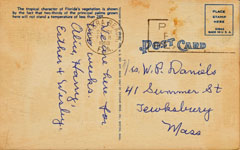 The tropical character of Florida's vegetation is shown
by the fact that two-thirds of the principal palms grown
here will not stand a temperature of less than
PLACE
STAMP
HERE
POST CARD
We are here for
two weeks.
Alice, Harry,
Esther & Wesley.
Mrs. W. P. Daniels
41 Summer St
Tewksbury
Mass